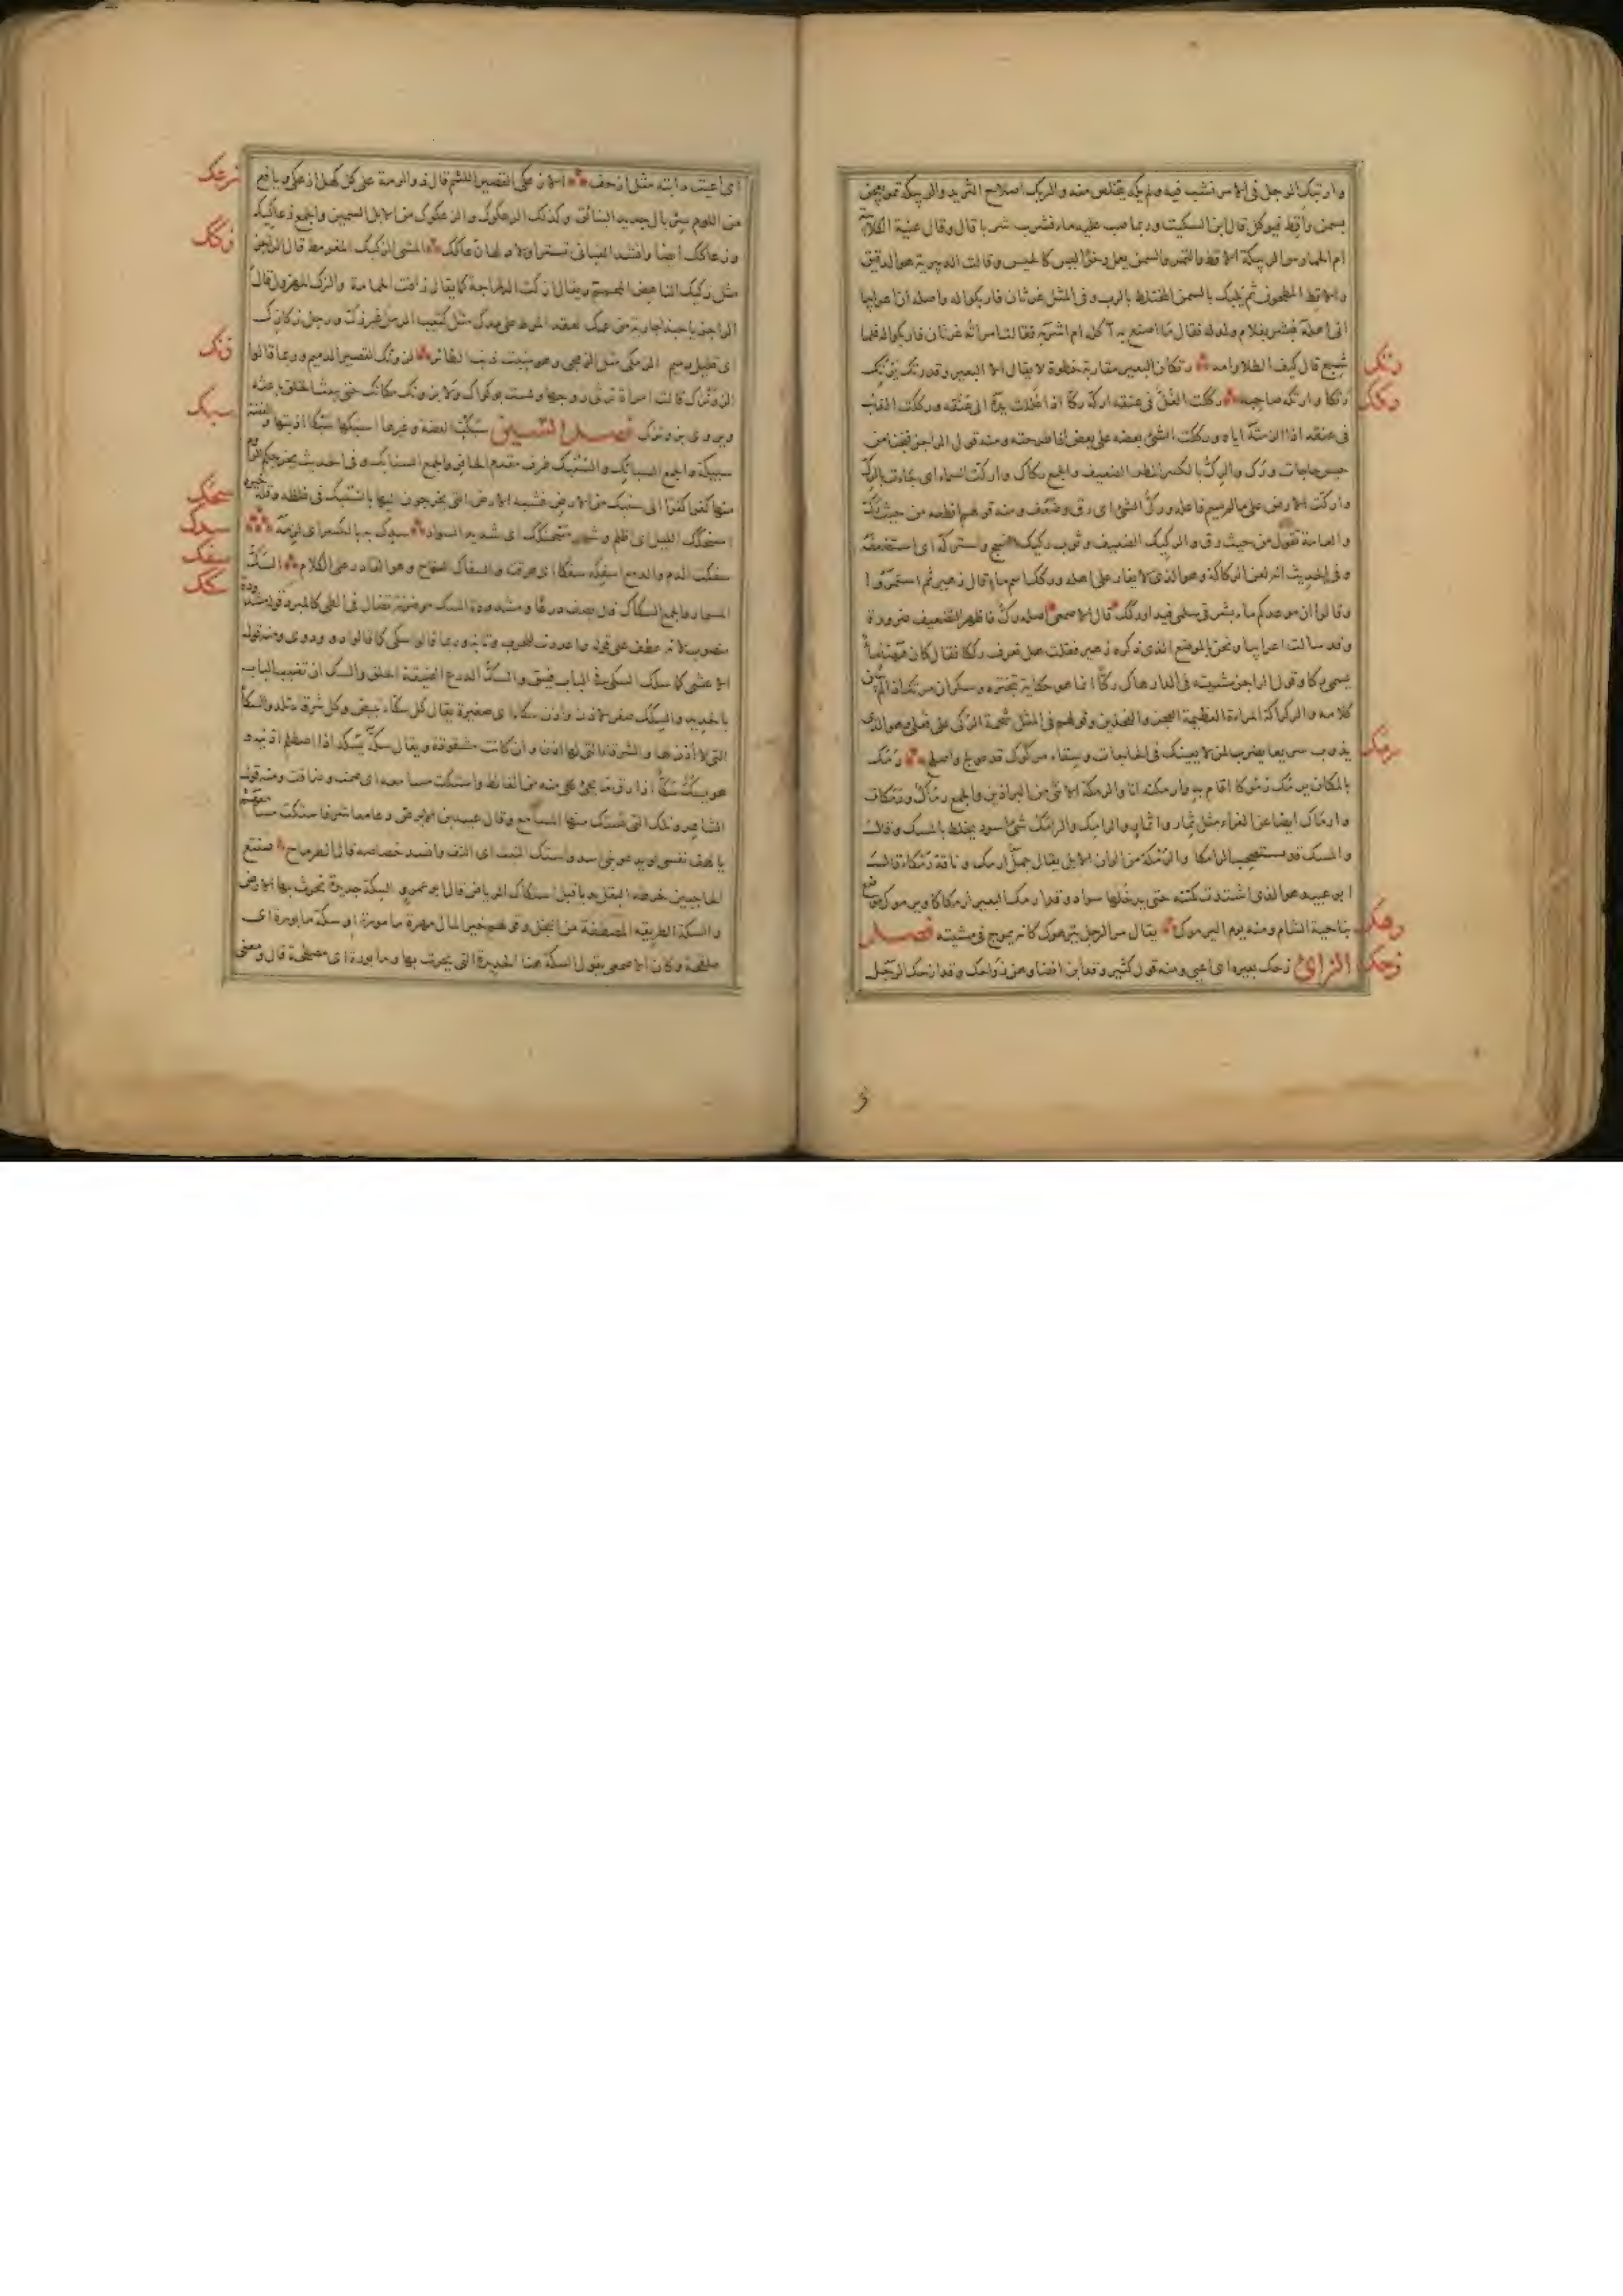 وارتبك الرجل فى الامر نشب فيه ولم يكد يتخلص منه والربك اصلاح الثريد والربيكة تمر يعجن
بسمن واقط فيوكل قال ابن السكيت وربما صب عليه ماء فشرب شربا قال وقال غنية الكلابية
ام الحمارس الربيكة الاقط والتمر والسمن يعمل رخوا ليس كالحيس وقالت الدبيرية هو الدقيق
والاقط المطحون ثم يلبك بالسمن المختلط بالرب وفى المثل غرثان فاربكوا له واصله ان اعرابيا
اتى اهله فبشر بغلام ولد له فقال ما اصنع به آكله ام اشربه فقالت امراته غرثان فاربكوا له فلما
رتك
شبع قال كيف الطلا وامه رتكان البعير مقاربة خطوه لا يقال الا للبعير وقد رتك يرتك
ركك
رتكا وارتكه صاحبه ركلت الغل فى عنقه اركه ركا اذا غللت يده الى عنقه ورككت الذنب
فى عنقه اذا الزمته اياه ورككت الشئ بعضه على بعض اذا طرحته ومنه قول الراجز فنجنا من
حبس حاجات ورك والرك بالكسر المطر الضعيف والجمع ركاك واركت السماء اى جاءت بالرك
واركت الارض على ما لم يسم فاعله ورك الشئ اى رق وضعف ومنه قولهم اقطعه من حيث رك
والعامة تقول من حيث رق والركيك الضعيف وثوب ركيك النسج واستركه اى استضعفه
وفى الحديث انه لعن الركاكة وهو الذى لا يغار على اهله وركك اسم ماء قال زهير ثم استمروا
وقالوا ان موعدكم ماء بشرقى سلمى فيد او ركك قال الاصمعى اصله رك فاظهر التضعيف ضرورة
وقد سالت اعرابيا ونحن بالموضع الذى ذكره زهير فقلت هل تعرف رككا فقال كان ههنا ماء
يسمى ركا وقول الراجز مشيته فى الدار هاك ركا انما هو حكاية تبختره وسكران مرتك اذا لم يبن
كلامه والركراكة المراءة العظيمة العجز والفخذين وقولهم فى المثل شحمة الركى على فعلى وهو الذى
رمك
يذوب سريعا يضرب لمن لا يعينك فى الحاجات وسقاء مركوك قد عولج واصلح رمك
بالمكان يرمك رموكا اقام به وارمكته انا والرمكة الانثى من البراذين والجمع رماك ورمكات
وارماك ايضا عن الفراء مثل ثمار واثمار والرامك والرامك شئ اسود يخلط بالمسك وقال
والمسك قد يستصحب الرامكا والرمكة من الوان الابل يقال جمل ارمك وناقة رمكاء قال
ابو عبيد هو الذى اشتدت كمتته حتى يدخلها سواد وقد ارمك البعير ارمكاكا ويرموك موضع
رهك
بناحية الشام ومنه يوم اليرموك يقال مر الرجل يترهوك كانه يموج فى مشيته فصل
زحك
الزاى زحك بعيره اى اعيى ومنه قول كثير وقد ابن انضاء وهن زواحك وقد ازحك الرجل
زعك
اى اعيت دابته مثل ازحف الازعكى القصير اللئيم قال ذو الرمة على كل كهل ازعكى ويافع
من اللوم سربال جديد البنائق وكذلك الزعكوك والزعكوك من الابل السمين والجمع زعاكيك
زكك
وزعاكك ايضا وانشد القنانى تستن اولاد لها زعاكك المشى الزكيك المقرمط قال الراجز
مثل زكيك الناهض المحمم ويقال زكت الدراجة كما يقال زافت الحمامة والزك المهزول قال
الراجز يا حبذا جارية من عك تعقد المرط على مدك مثل كثيب الرمل غير زك ورجل زكازك
زنك
اى قليل دميم الزمكى مثل الزمجى وهو منبت ذنب الطائر الزونك القصير الدميم وربما قالوا
الزونزك قالت امراة ترثى زوجها ولست بوكواك ولا بزونك مكانك حتى يبعث الخلق باعثه
سبك
ويروى بزونزك فصل السين سبكت الفضة وغيرها اسبكها سبكا اذبتها والفضة
سبيكة والجمع السبائك والسنبك طرف مقدم الحافر والجمع السنابك وفى الحديث يخرجكم الروم
سحك
منها كفرا كفرا الى سنبك من الارض فشبه الارض التى يخرجون اليها بالسنبك فى غلظه وقلة خيره
سدك
اسحنكك الليل اى اظلم وشعر مسحنكك اى شديد السواد سدك به بالكسر اى لزمه
سفك
سفكت الدم والدمع اسفكه سفكا اى هرقته والسفاك السفاح وهو القادر على الكلام السك
سكك
المسمار والجمع السكاك قال يصف درعا ومشدودة السك موضونة تضال فى الطى كالمبرد قوله مشدودة
منصوب لانه عطف على قوله واعددت للحرب وثابة وربما قالوا سكى كما قالوا دو ودوى ومنه قول
الاعشى كما سلك السكى فى الباب فيتق والسك الدرع الضيقة الحلق والسك ان تضبب الباب
بالحديد والسكك صغر الاذن واذن سكاء اى صغيرة يقال كل سكاء تبيض وكل شرقاء تلد والسكا
التى لا اذن لها والشرقاء التى لها اذن وان كانت مشقوقة ويقال سكه يسكه اذا اصطلم اذنيه و
هو يسك سكا اذا رق ما يجئ على منه من الغائط واستكت مسامعه اى صمت وضاقت ومنه قول
الشاعر وتلك التى تستك منها المسامع وقال عبيد بن الابرص دعا معاشر فاستكت مسامعهم
يا لهف نفسى لو يدعو بنى اسد واستك النبت اى التف وانسد خصاصه قال الطرماح صنتع
الحاجبين خرطه البقل بديا قبل استكاك الرياض قال ابو عمرو السكة حديدة تحرث بها الارض
والسكة الطريقة المصطفة من النخل وقولهم خير المال مهرة مامورة او سكة مابورة اى
ملقحة وكان الاصمعى يقول السكة هنا الحديدة التى يحرث بها ومابورة اى مصلحة قال ومعنى